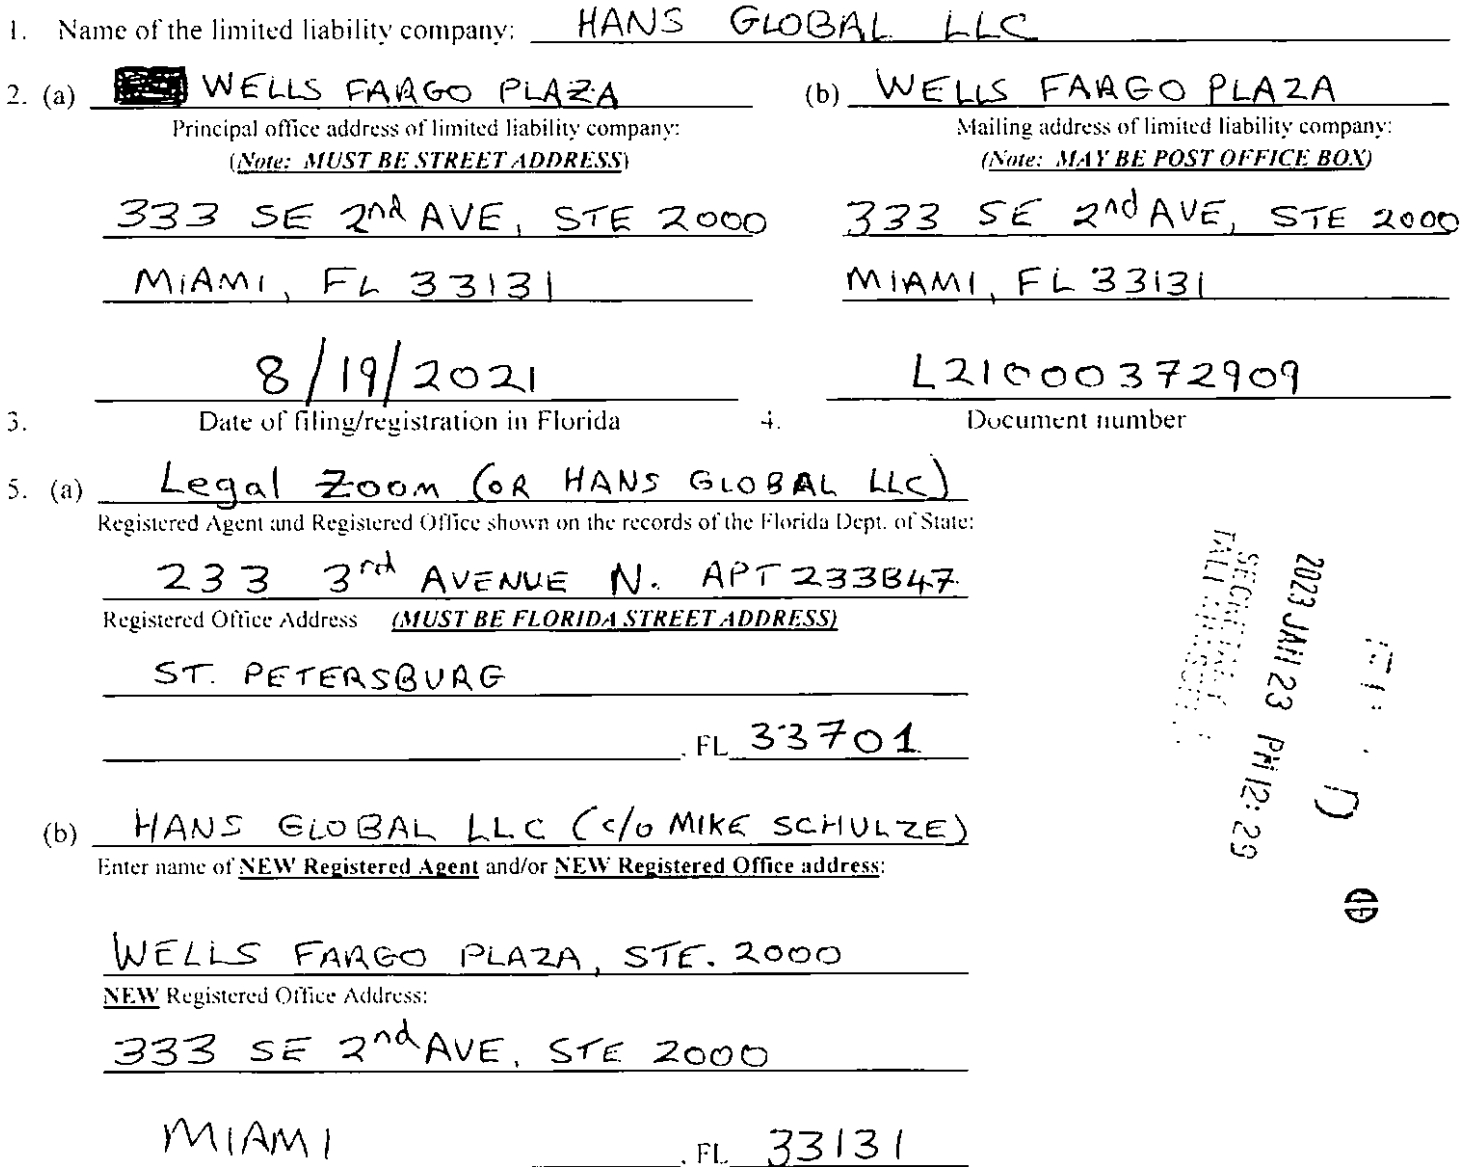 1. Name of the limited liability company: HANS GLOBAL LLC
2. (a) WELLS FARGO PLAZA
Principal office address of limited liability company:
(Note: MUST BE STREET ADDRESS)
333 SE 2nd AVE, STE 2000
MIAMI, FL 33131
(b) WELLS FARGO PLAZA
Mailing address of limited liability company:
(Note: MAY BE POST OFFICE BOX)
333 SE 2nd AVE, STE 2000
MIAMI, FL 33131
8/19/2021
3. Date of filing/registration in Florida
L21000372909
4. Document number
5. (a) Legal Zoom (OR HANS GLOBAL LLC)
Registered Agent and Registered Office shown on the records of the Florida Dept. of State:
233 3rd AVENUE N. APT 233B47
Registered Office Address (MUST BE FLORIDA STREET ADDRESS)
ST. PETERSBURG
, FL 33701
(b) HANS GLOBAL LLC (c/o MIKE SCHULZE)
Enter name of NEW Registered Agent and/or NEW Registered Office address:
WELLS FARGO PLAZA, STE. 2000
NEW Registered Office Address:
333 SE 2nd AVE, STE 2000
MIAMI , FL 33131
2023 JAN 23 PM 12: 29